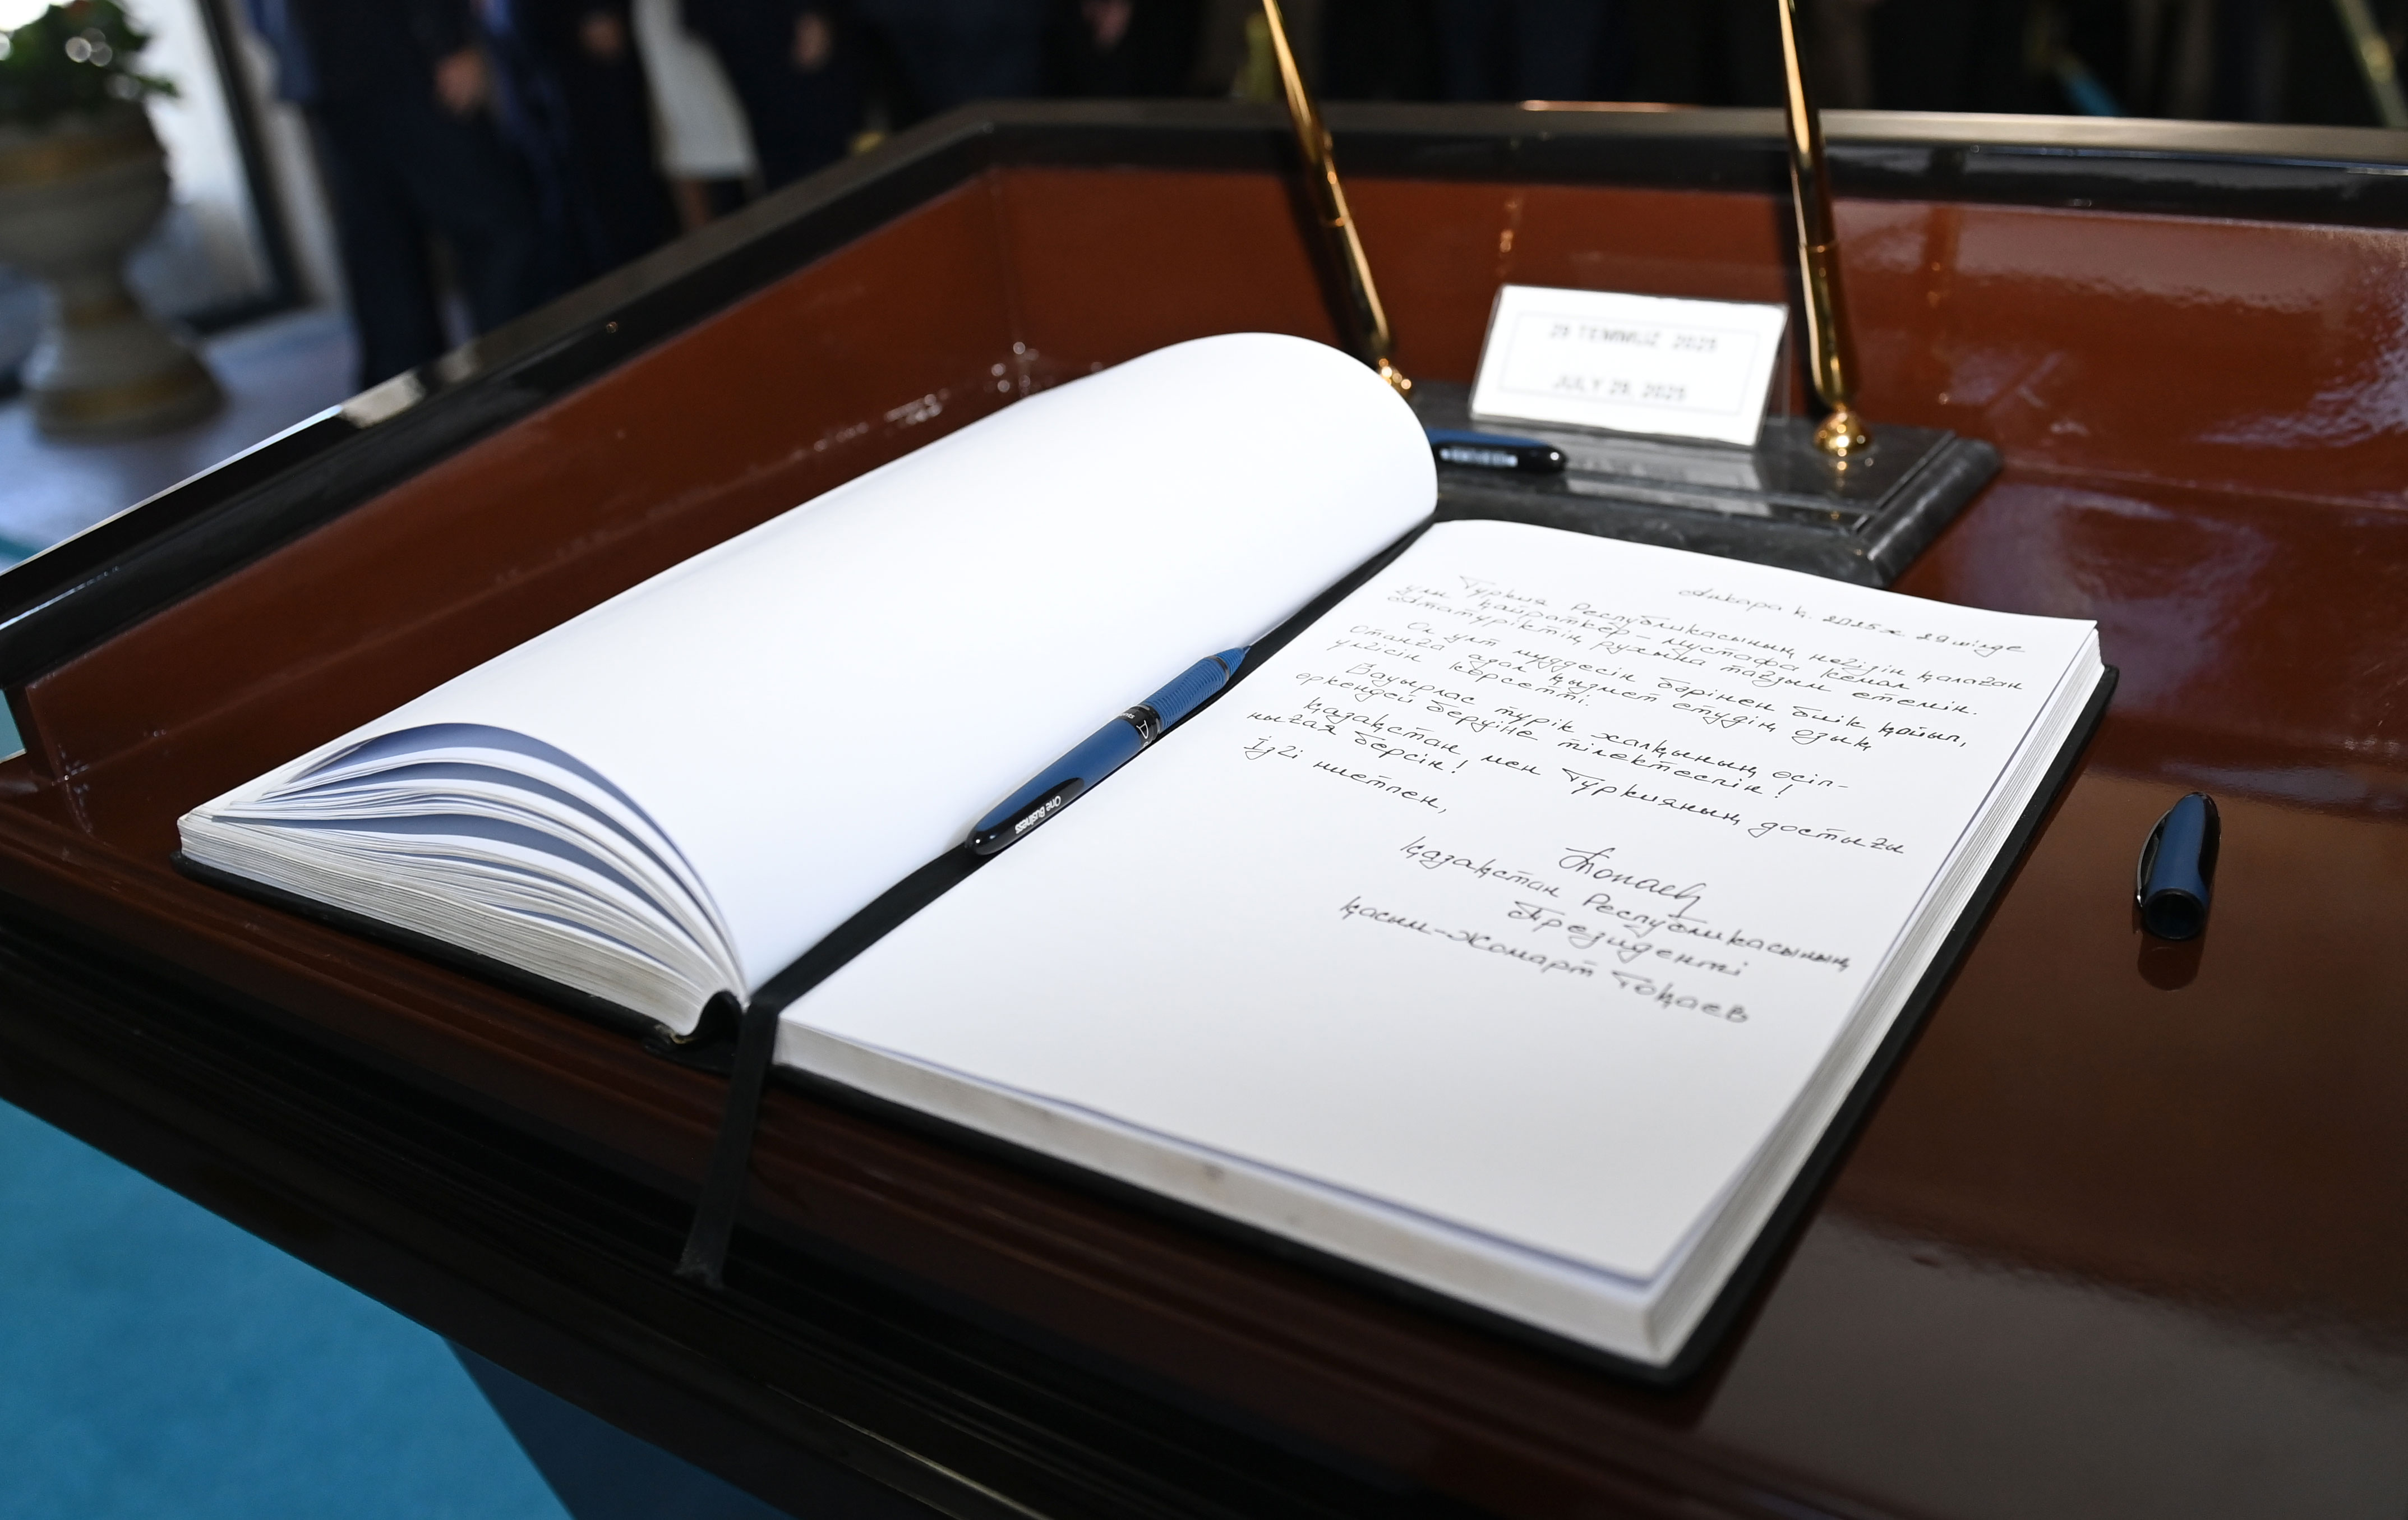 29 TEMMUZ 2025
JULY 29, 2025
Анкара қ. 2025 ж 29 шілде
Түркия Республикасының негізін қалаған
ұлы қайраткер – Мұстафа Кемал
Ататүріктің рухына тағзым етемін.
Ол ұлт мүддесін бәрінен биік қойып,
Отанға адал қызмет етудің озық
үлгісін көрсетті.
Бауырлас түрік халқының өсіп-
өркендей беруіне тілектеспін!
Қазақстан мен Түркияның достығы
нығая берсін!
Ізгі ниетпен,
Қазақстан Республикасының
Президенті
Қасым-Жомарт Тоқаев
One Business